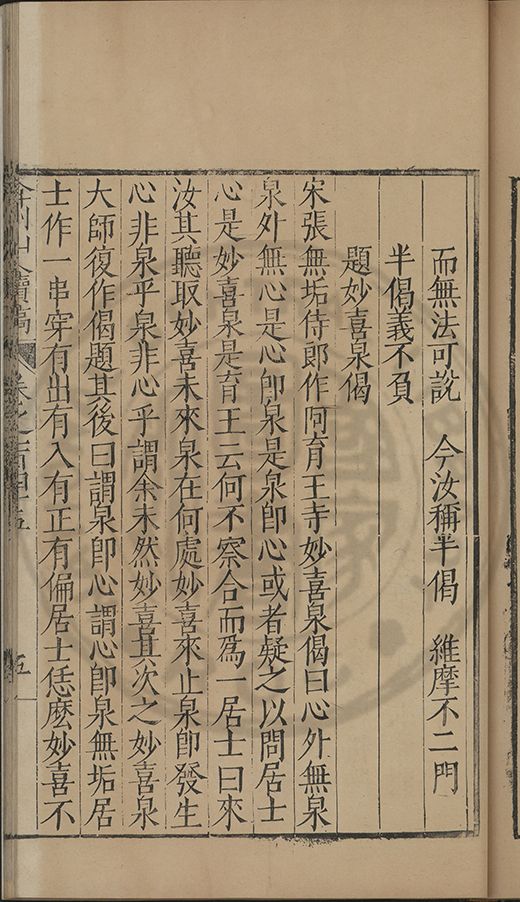 而無法可說　今汝稱半偈　維摩不二門
半偈義不負
題妙喜泉偈
宋張無垢侍郎作阿育王寺妙喜泉偈曰心外無泉
泉外無心是心卽泉是泉卽心或者疑之以問居士
心是妙喜泉是育王云何不察合而爲一居士曰來
汝其聽取妙喜未來泉在何處妙喜來止泉卽發生
心非泉乎泉非心乎謂余未然妙喜其次之妙喜泉
大師復作偈題其後曰謂泉卽心謂心卽泉無垢居
士作一串穿有出有入有正有偏居士恁麽妙喜不
續稿
五